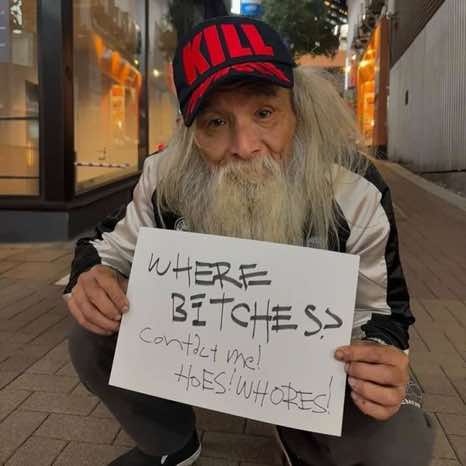 KILL
WHERE
BITCHES?
Contact me!
HOES! WHORES!